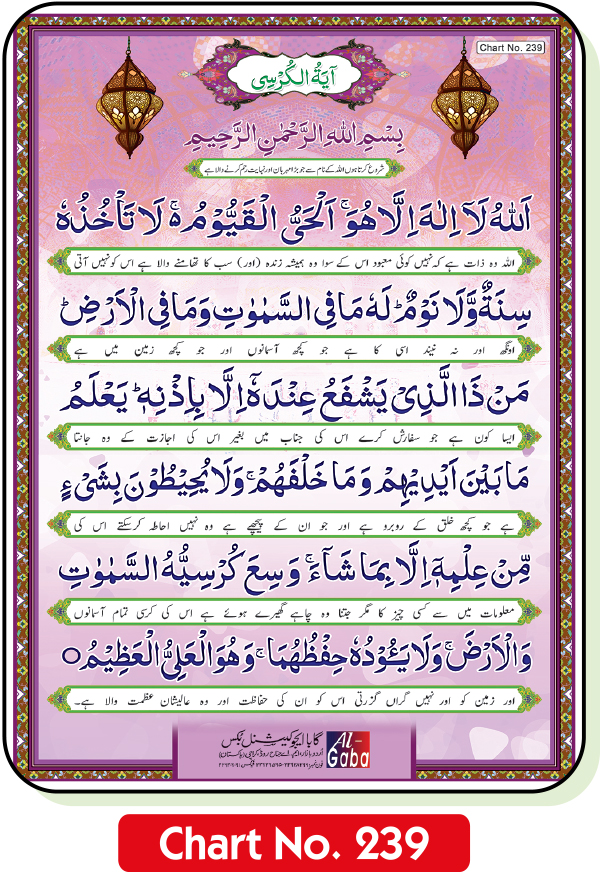 Chart No. 239
آیَةُ الْکُرْسِی
بِسْمِ اللهِ الرَّحْمٰنِ الرَّحِیْمِ
شروع کرتا ہوں اللہ کے نام سے جو بڑا مہربان اور نہایت رحم کرنے والا ہے
اَللهُ لَآ اِلٰهَ اِلَّا هُوَۚ اَلْحَیُّ الْقَیُّوْمُ ۚ لَا تَاْخُذُهٗ
اللہ وہ ذات ہے کہ نہیں کوئی معبود اس کے سوا وہ ہمیشہ زندہ (اور) سب کا تھامنے والا ہے اس کو نہیں آتی
سِنَةٌ وَّلَا نَوْمٌ ؕ لَهٗ مَا فِی السَّمٰوٰتِ وَمَا فِی الْاَرْضِ ؕ
اونگھ اور نہ نیند اسی کا ہے جو کچھ آسمانوں اور جو کچھ زمین میں ہے
مَنْ ذَا الَّذِیْ یَشْفَعُ عِنْدَهٗۤ اِلَّا بِاِذْنِهٖ ؕ یَعْلَمُ
ایسا کون ہے جو سفارش کرے اس کی جناب میں بغیر اس کی اجازت کے وہ جانتا
مَا بَیْنَ اَیْدِیْهِمْ وَمَا خَلْفَهُمْ ۚ وَلَا یُحِیْطُوْنَ بِشَیْءٍ
ہے جو کچھ خلق کے روبرو ہے اور جو ان کے پیچھے ہے وہ نہیں احاطہ کرسکتے اس کی
مِّنْ عِلْمِهٖۤ اِلَّا بِمَا شَآءَ ۚ وَسِعَ كُرْسِیُّهُ السَّمٰوٰتِ
معلومات میں سے کسی چیز کا مگر جتنا وہ چاہے گھیرے ہوئے ہے اس کی کرسی تمام آسمانوں
وَالْاَرْضَ ۚ وَلَا یَـُٔوْدُهٗ حِفْظُهُمَا ۚ وَهُوَ الْعَلِیُّ الْعَظِیْمُ ○
اور زمین کو اور نہیں گراں گزرتی اس کو ان کی حفاظت اور وہ عالیشان عظمت والا ہے۔
گابا ایجوکیشنل بکس
اردو بازار، ایم۔اے جناح روڈ، کراچی (پاکستان)
AL-Gaba
Chart No. 239